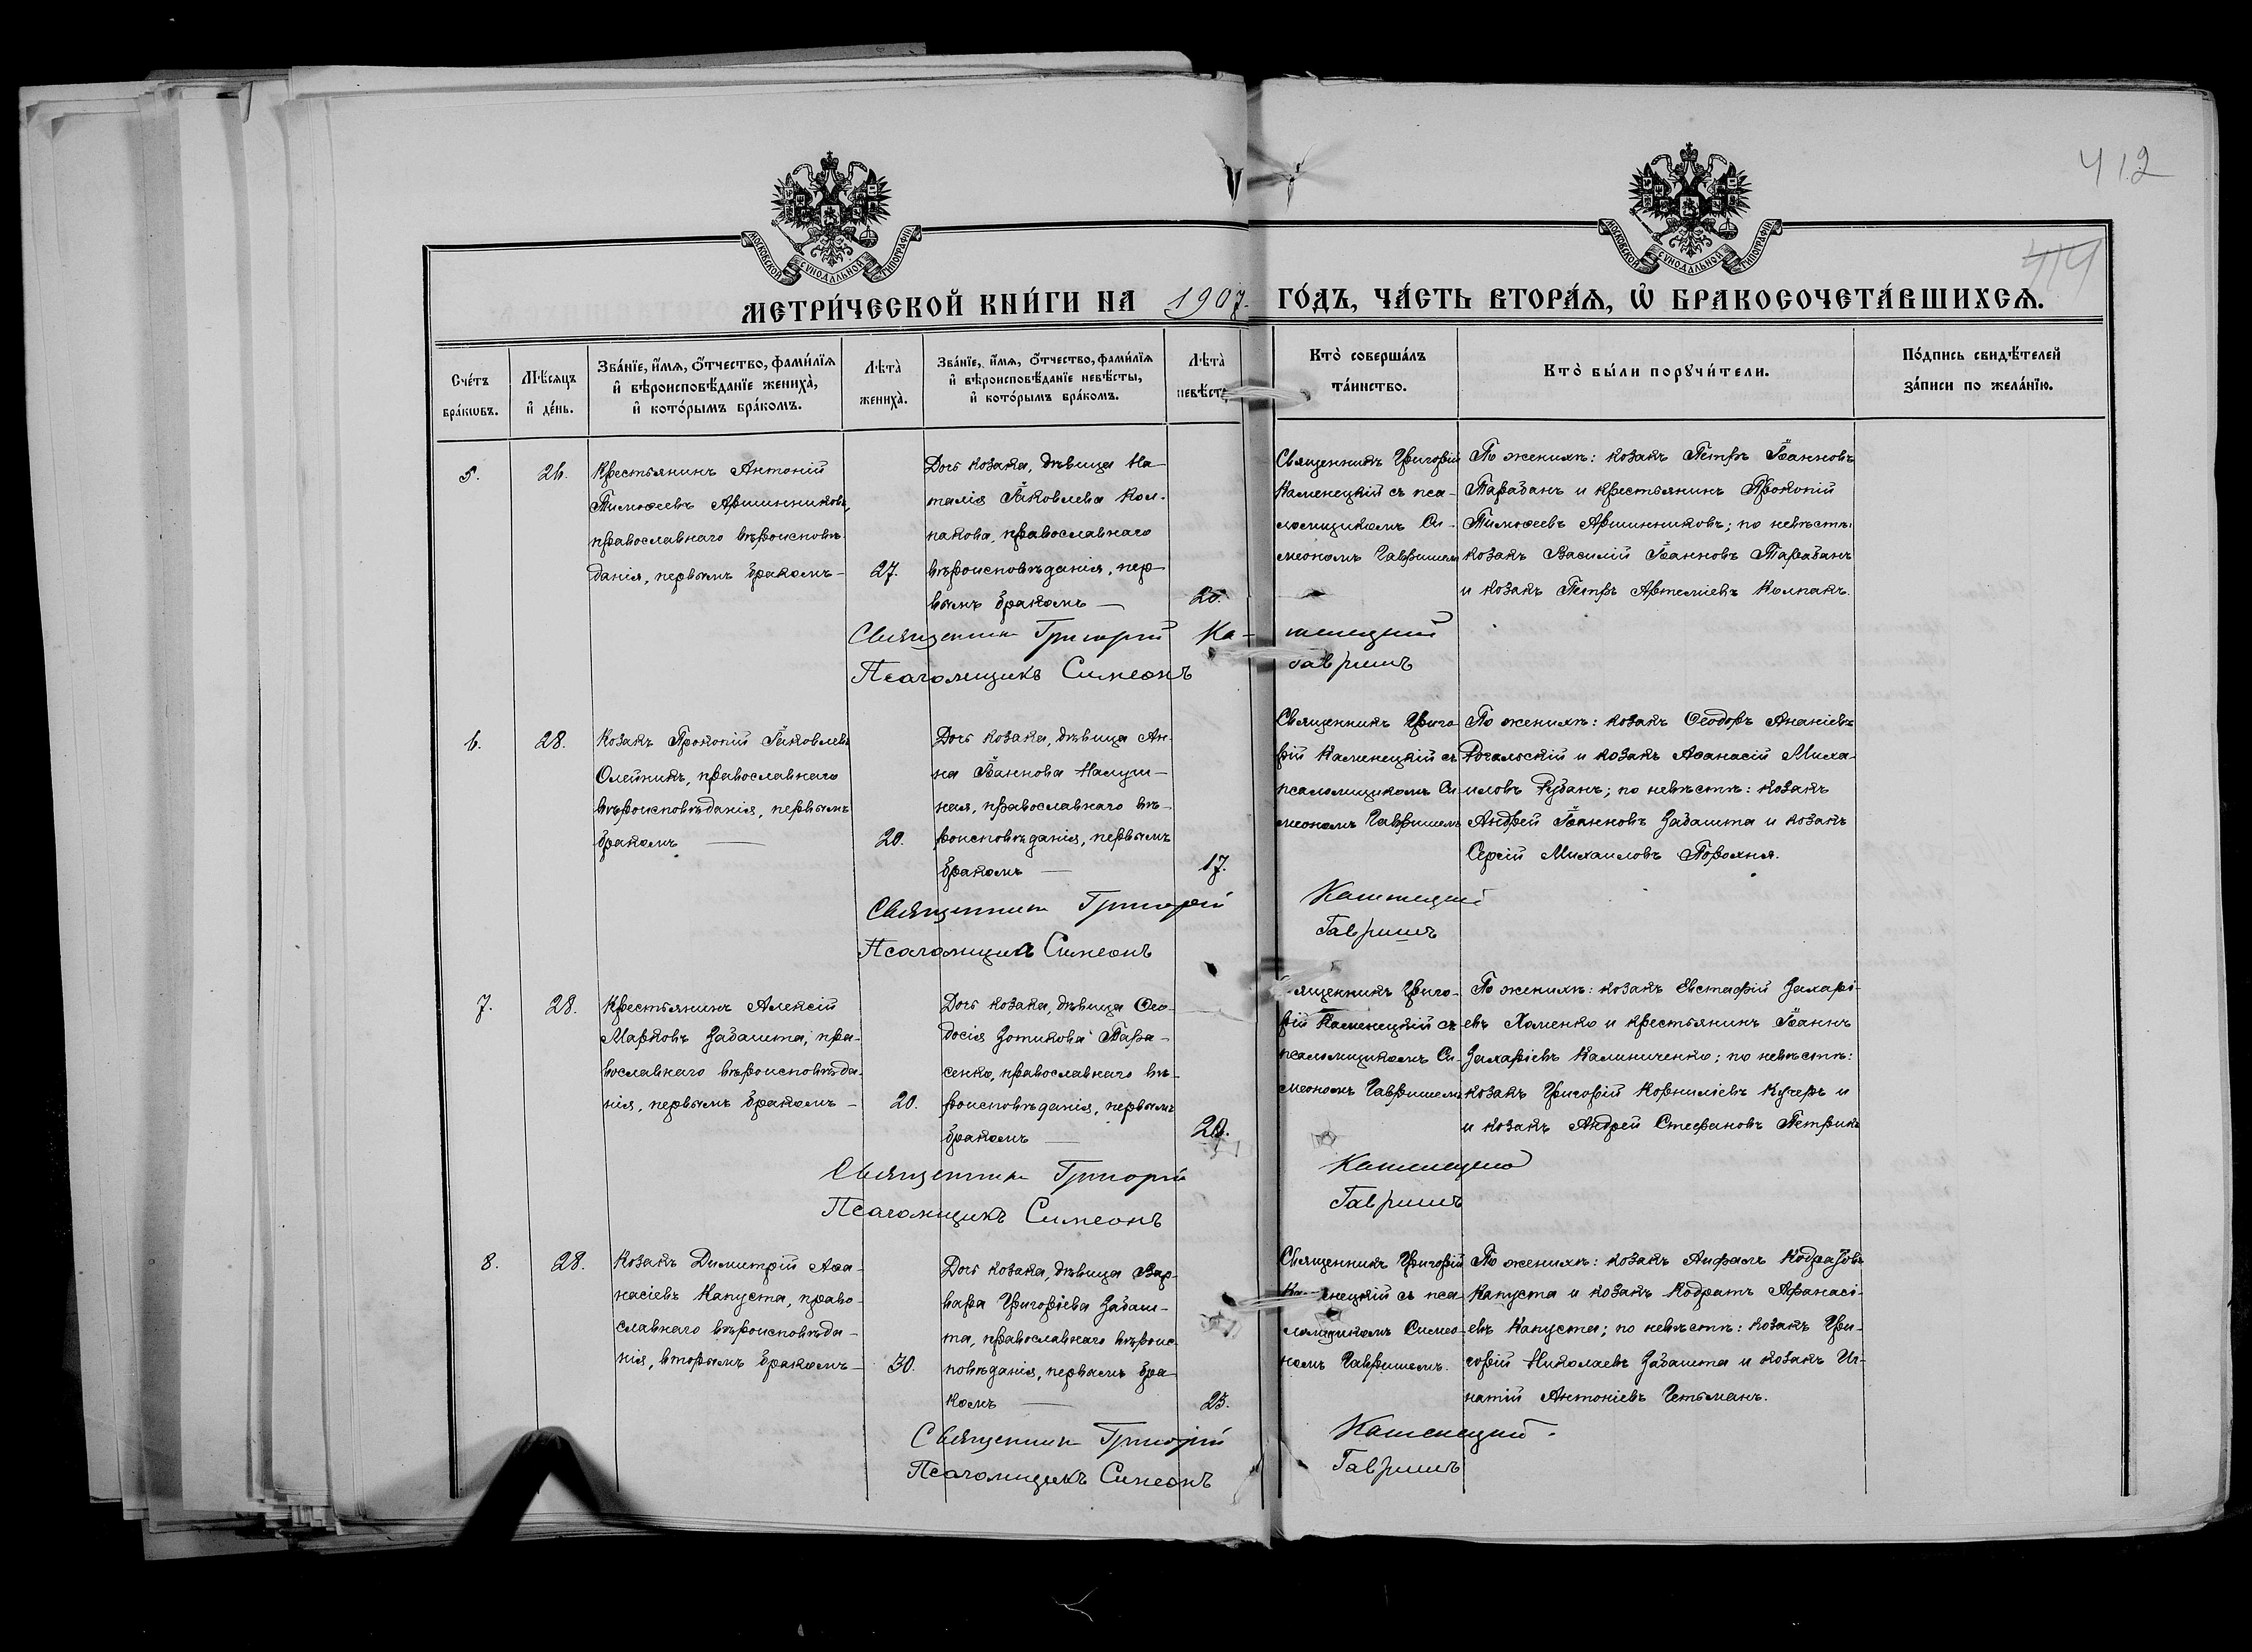 412
414
МОСКОВСКОЙ СУНОДАЛЬНОЙ ТИПОГРАФІИ
МОСКОВСКОЙ СУНОДАЛЬНОЙ ТИПОГРАФІИ
МЕТРИ́ЧЕСКОЙ КНИ́ГИ НА 1907 ГО́ДЪ, ЧА́СТЬ ВТОРА́Я, Ѿ БРАКОСОЧЕТА́ВШИХСЯ.
Сче́тъ
бра́кѡвъ.
Мѣ́сяцъ
и҆ де́нь.
Зва́нїе, и҆́мя, ѻ҆́тчество, фами́лїя
и҆ вѣроисповѣ́данїе жениха̀,
и҆ кото́рымъ бра́комъ.
Лѣта̀
жениха̀.
Зва́нїе, и҆́мя, ѻ҆́тчество, фами́лїя
и҆ вѣроисповѣ́данїе невѣ́сты,
и҆ кото́рымъ бра́комъ.
Лѣта̀
невѣ́сты
Кто̀ соверша́лъ
та́инство.
Кто̀ бы́ли порꙋчи́тели.
По́дпись свидѣ́телей
за́писи по жела́нїю.
5.
26.
Крестьянинъ Антоній
Тимоѳеевъ Аршинниковъ,
православнаго вѣроисповѣ-
данія, первымъ бракомъ —
27.
Дочь козака, дѣвица На-
талія Іаковлева Кол-
пакова, православнаго
вѣроисповѣданія, пер-
вымъ бракомъ —
20.
Священникъ Григорій
Каменецкій съ пса-
ломщикомъ Си-
меономъ Гавришемъ
По женихѣ: козакъ Петръ Іоанновъ
Тарабанъ и крестьянинъ Прокопій
Тимоѳеевъ Аршинниковъ; по невѣсты
козакъ Василій Іоанновъ Тарабанъ
и козакъ Петръ Артеміевъ Колпакъ.
Священник Григорій Ка-менецкий
Псаломщикъ Симеонъ Гавришъ
6.
28.
Козакъ Прокопій Іаковлевъ
Олейникъ, православнаго
вѣроисповѣданія, первымъ
бракомъ —
20.
Дочь козака, дѣвица Ан-
на Іоаннова Налуш-
ная, православнаго вѣ-
роисповѣданія, первымъ
бракомъ —
17.
Священникъ Григо-
рій Каменецкій съ
псаломщикомъ Си-
меономъ Гавришемъ
По женихѣ: козакъ Ѳеодоръ Ананіевъ
Рогальскій и козакъ Аѳанасій Миха-
иловъ Рубанъ; по невѣстѣ: козакъ
Андрей Іоанновъ Забашта и козакъ
Сергій Михаиловъ Порохня.
Священник Григорій Каменецкий
Псаломщикъ Симеонъ Гавришъ
7.
28.
Крестьянинъ Алексій
Марковъ Забашта, пра-
вославнаго вѣроисповѣда-
нія, первымъ бракомъ —
20.
Дочь козака, дѣвица Ѳео-
досія Зотикова Тара-
сенко, православнаго вѣ-
роисповѣданія, первымъ
бракомъ —
20.
Священникъ Григо-
рій Каменецкій съ
псаломщикомъ Си-
меономъ Гавришемъ
По женихѣ: козакъ Евстафій Захарі-
евъ Хоменко и крестьянинъ Іоаннъ
Захаріевъ Калиниченко; по невѣстѣ:
козакъ Григорій Корниліевъ Кучеръ и
и козакъ Андрей Стефановъ Петрикъ
Священник Григорій Каменецкий
Псаломщикъ Симеонъ Гавришъ
8.
28.
Козакъ Димитрій Аѳа-
насіевъ Капуста, право-
славнаго вѣроисповѣда-
нія, вторымъ бракомъ —
30.
Дочь козака, дѣвица Вар-
вара Григоріева Забаш-
та, православнаго вѣроис-
повѣданія, первымъ бра-
комъ —
25.
Священникъ Григорій
Каменецкій съ пса-
ломщикомъ Симео-
номъ Гавришемъ.
По женихѣ: козакъ Анфалъ Кодратовъ
Капуста и козакъ Кодратъ Афанасі-
евъ Капуста; по невѣстѣ: козакъ Гри-
горій Николаевъ Забашта и козакъ Иг-
натій Антоніевъ Гетьманъ.
Священник Григорій Каменецкий.
Псаломщикъ Симеонъ Гавришъ